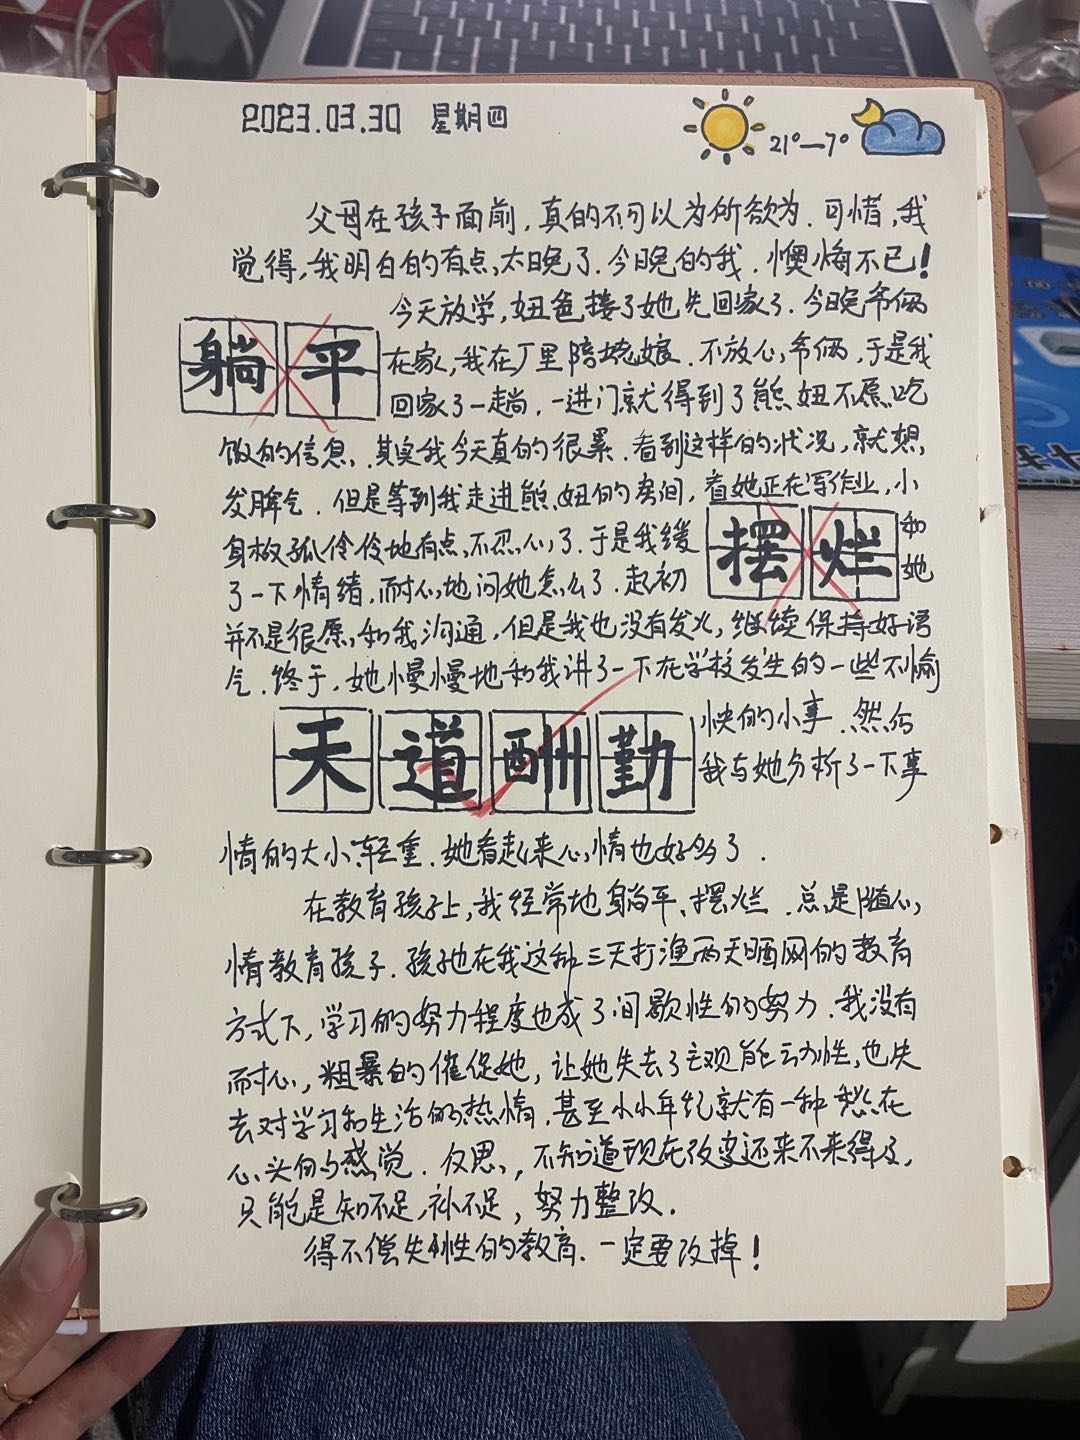 2023.03.30 星期四
21°—7°
父母在孩子面前,真的不可以为所欲为.可惜,我
觉得,我明白的有点太晚了.今晚的我.懊悔不已!
今天放学,妞爸接了她先回家了.今晚爷俩
躺平
在家,我在厂里陪姥娘.不放心爷俩,于是我
回家了一趟.一进门就得到了熊妞不愿吃
饭的信息.其实我今天真的很累.看到这样的状况,就想
发脾气.但是等到我走进熊妞的房间,看她正在写作业,小
身板孤伶伶地有点不忍心了.于是我缓
摆烂
和
了一下情绪.耐心地问她怎么了.起初
她
并不是很愿和我沟通,但是我也没有发火,继续保持好语
气.终于,她慢慢地和我讲了一下在学校发生的一些不愉
天道酬勤
快的小事.然后
我与她分析了一下事
情的大小、轻重.她看起来心情也好多了.
在教育孩子上,我经常地躺平、摆烂.总是随心
情教育孩子.孩子在我这种三天打渔两天晒网的教育
方式下,学习的努力程度也成了间歇性的努力.我没有
耐心,粗暴的催促她,让她失去了主观能动性,也失
去对学习和生活的热情.甚至小小年纪就有一种愁在
心头的感觉.反思,不知道现在改变还来不来得及,
只能是知不足,补不足,努力整改.
得不偿失性的教育.一定要改掉!